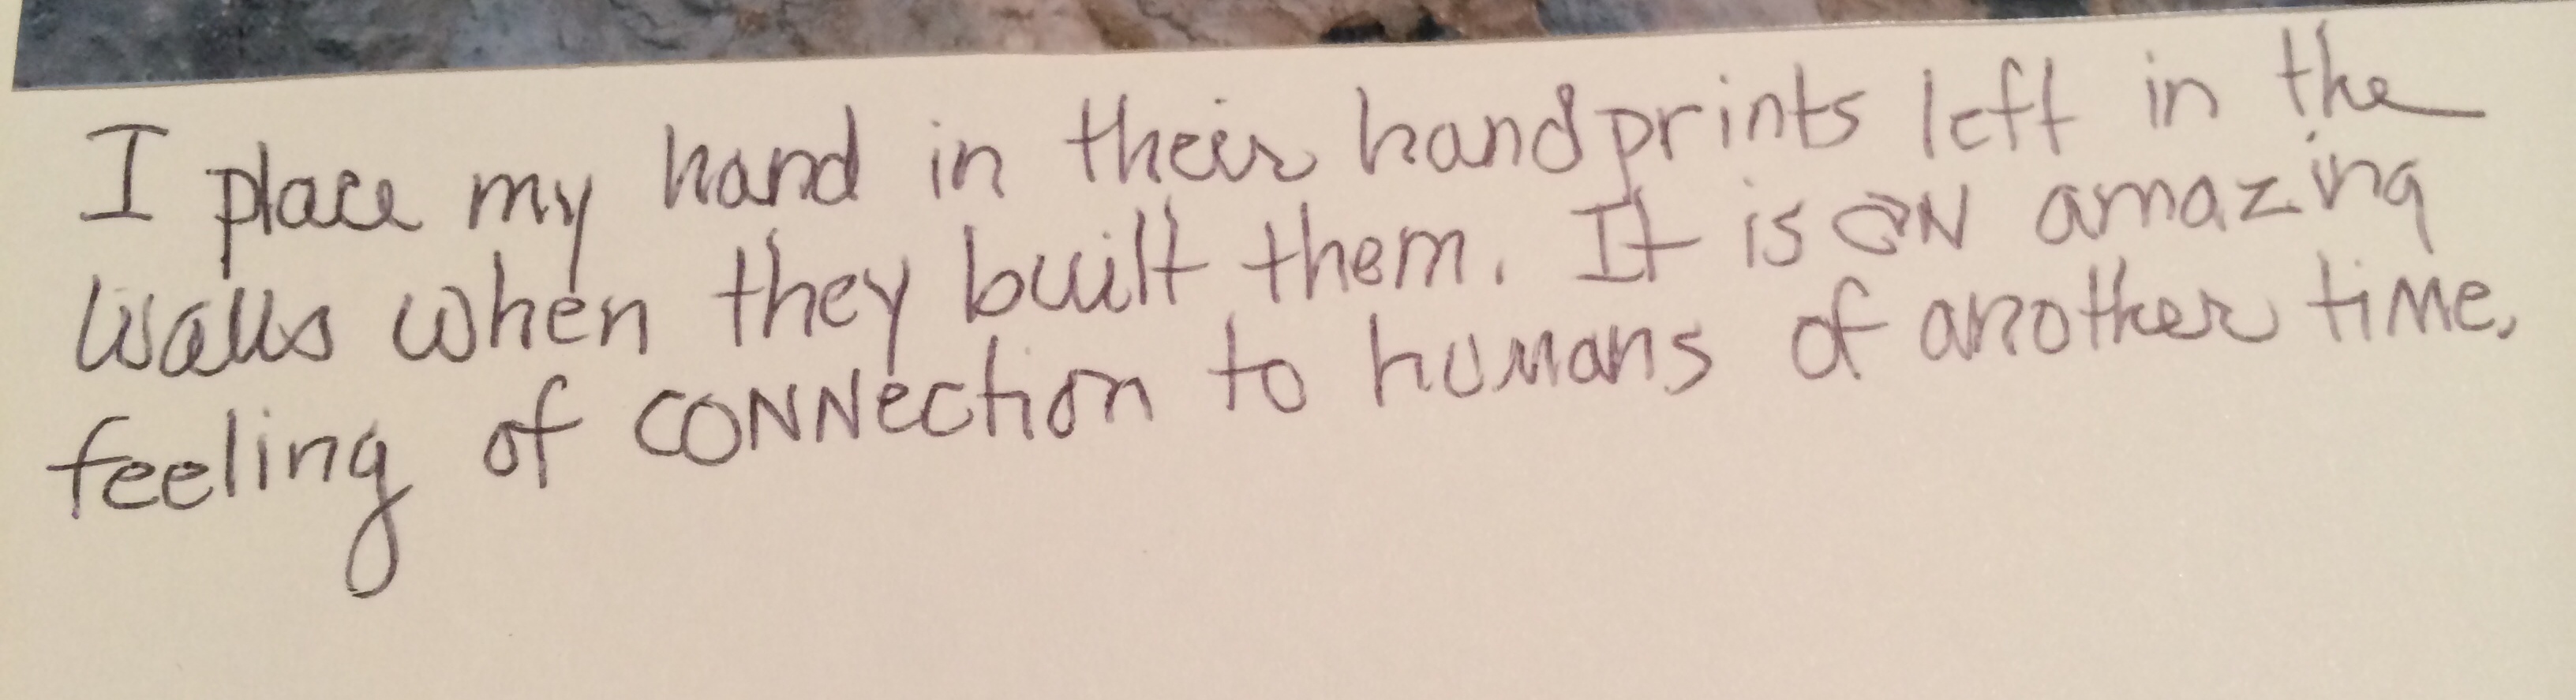 I place my hand in their handprints left in the
walls when they built them. It is an amazing
feeling of connection to humans of another time.